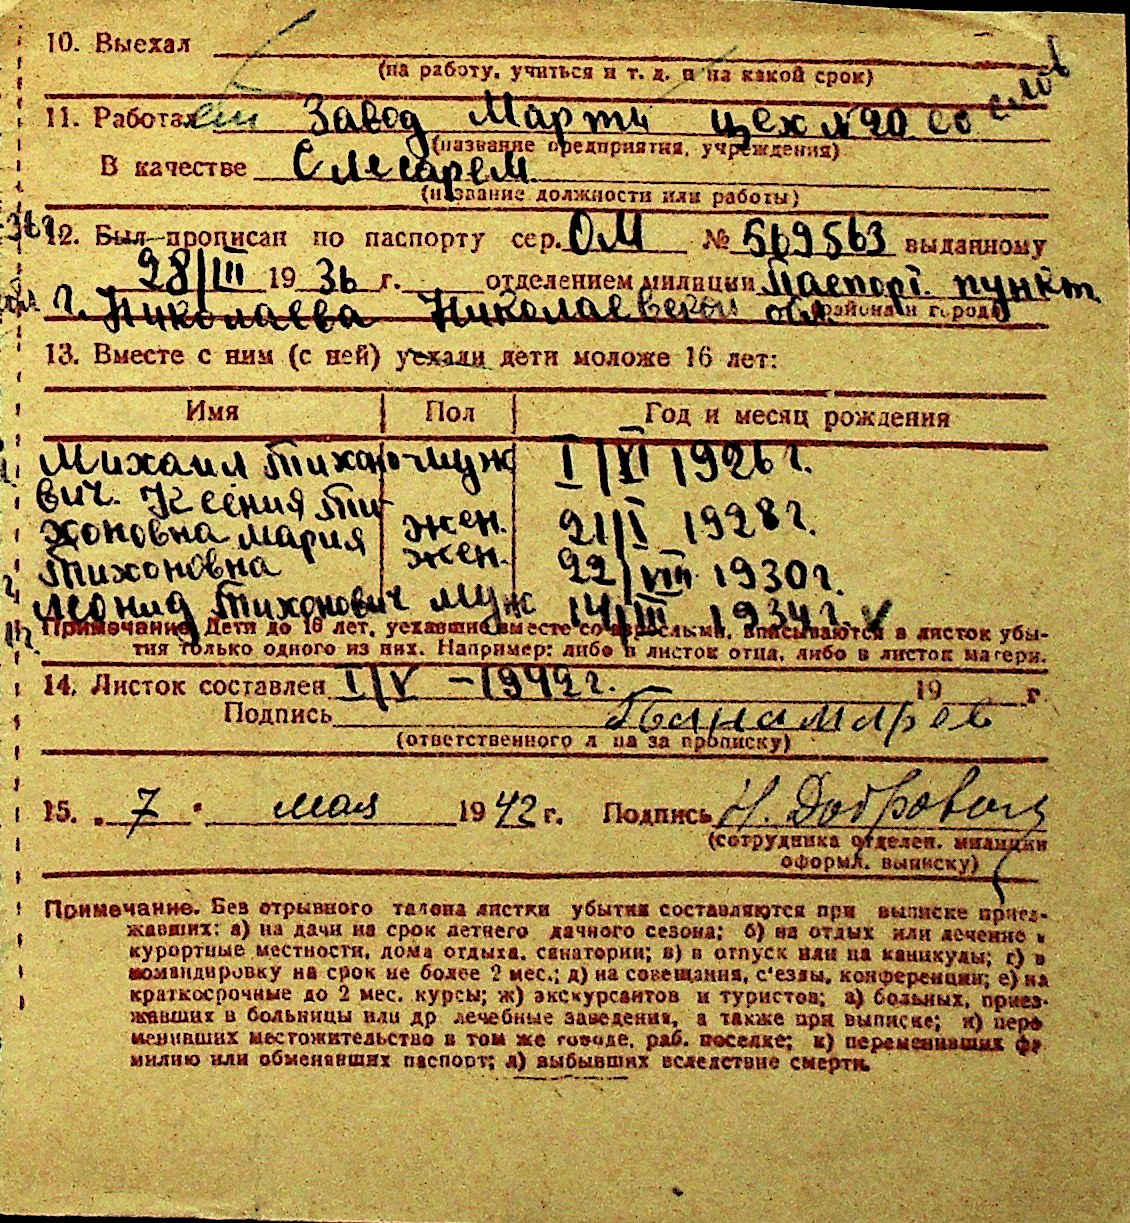 10. Выехал
(на работу, учиться и т. д. и на какой срок)
11. Работал Завод Марти цех № 20 со слов
(название предприятия, учреждения)
В качестве Слесарем
(название должности или работы)
12. Был прописан по паспорту сер. ОМ № 569563 выданному
28/III 1936 г. отделением милиции Паспорт. пункт
г. Николаева Николаевской обл. (района и города)
13. Вместе с ним (с ней) уехали дети моложе 16 лет:
Имя Пол Год и месяц рождения
Михаил Тихоно муж I/VI 1926 г.
вич. Ксения Ти
хоновна Мария жен. 21/I 1928 г.
Тихоновна жен. 22/VIII 1930 г.
Леонид Тихонович муж 14/III 1934 г. v
Примечание Дети до 16 лет, уехавшие вместе со взрослыми, вписываются в листок убы-
тия только одного из них. Например: либо в листок отца, либо в листок матери.
14. Листок составлен I/V – 1942 г. 19 г
Подпись Панамарев
(ответственного л ца за прописку)
15. „ 7 " мая 1942 г. Подпись Н. Добровол
(сотрудника отделен. милиции
оформл. выписку)
Примечание. Без отрывного талона листки убытия составляются при выписке приез-
жавших: а) на дачи на срок летнего дачного сезона; б) на отдых или лечение в
курортные местности, дома отдыха, санатории; в) в отпуск или на каникулы; г) в
командировку на срок не более 2 мес.; д) на совещания, с'езды, конференции; е) на
краткосрочные до 2 мес. курсы; ж) экскурсантов и туристов; з) больных, приез-
жавших в больницы или др лечебные заведения, а также при выписке; и) пере
менивших местожительство в том же городе, раб. поселке; к) переменивших фа
милию или обменявших паспорт; л) выбывших вследствие смерти.